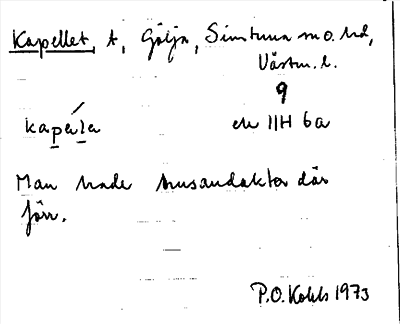 Kapellet, t, Gölja, Simtuna sn o. hd,
Västm. l.
9
kapéla ek 11H 6a
Man hade husandakter där
förr.
P.O. Kohls 1973